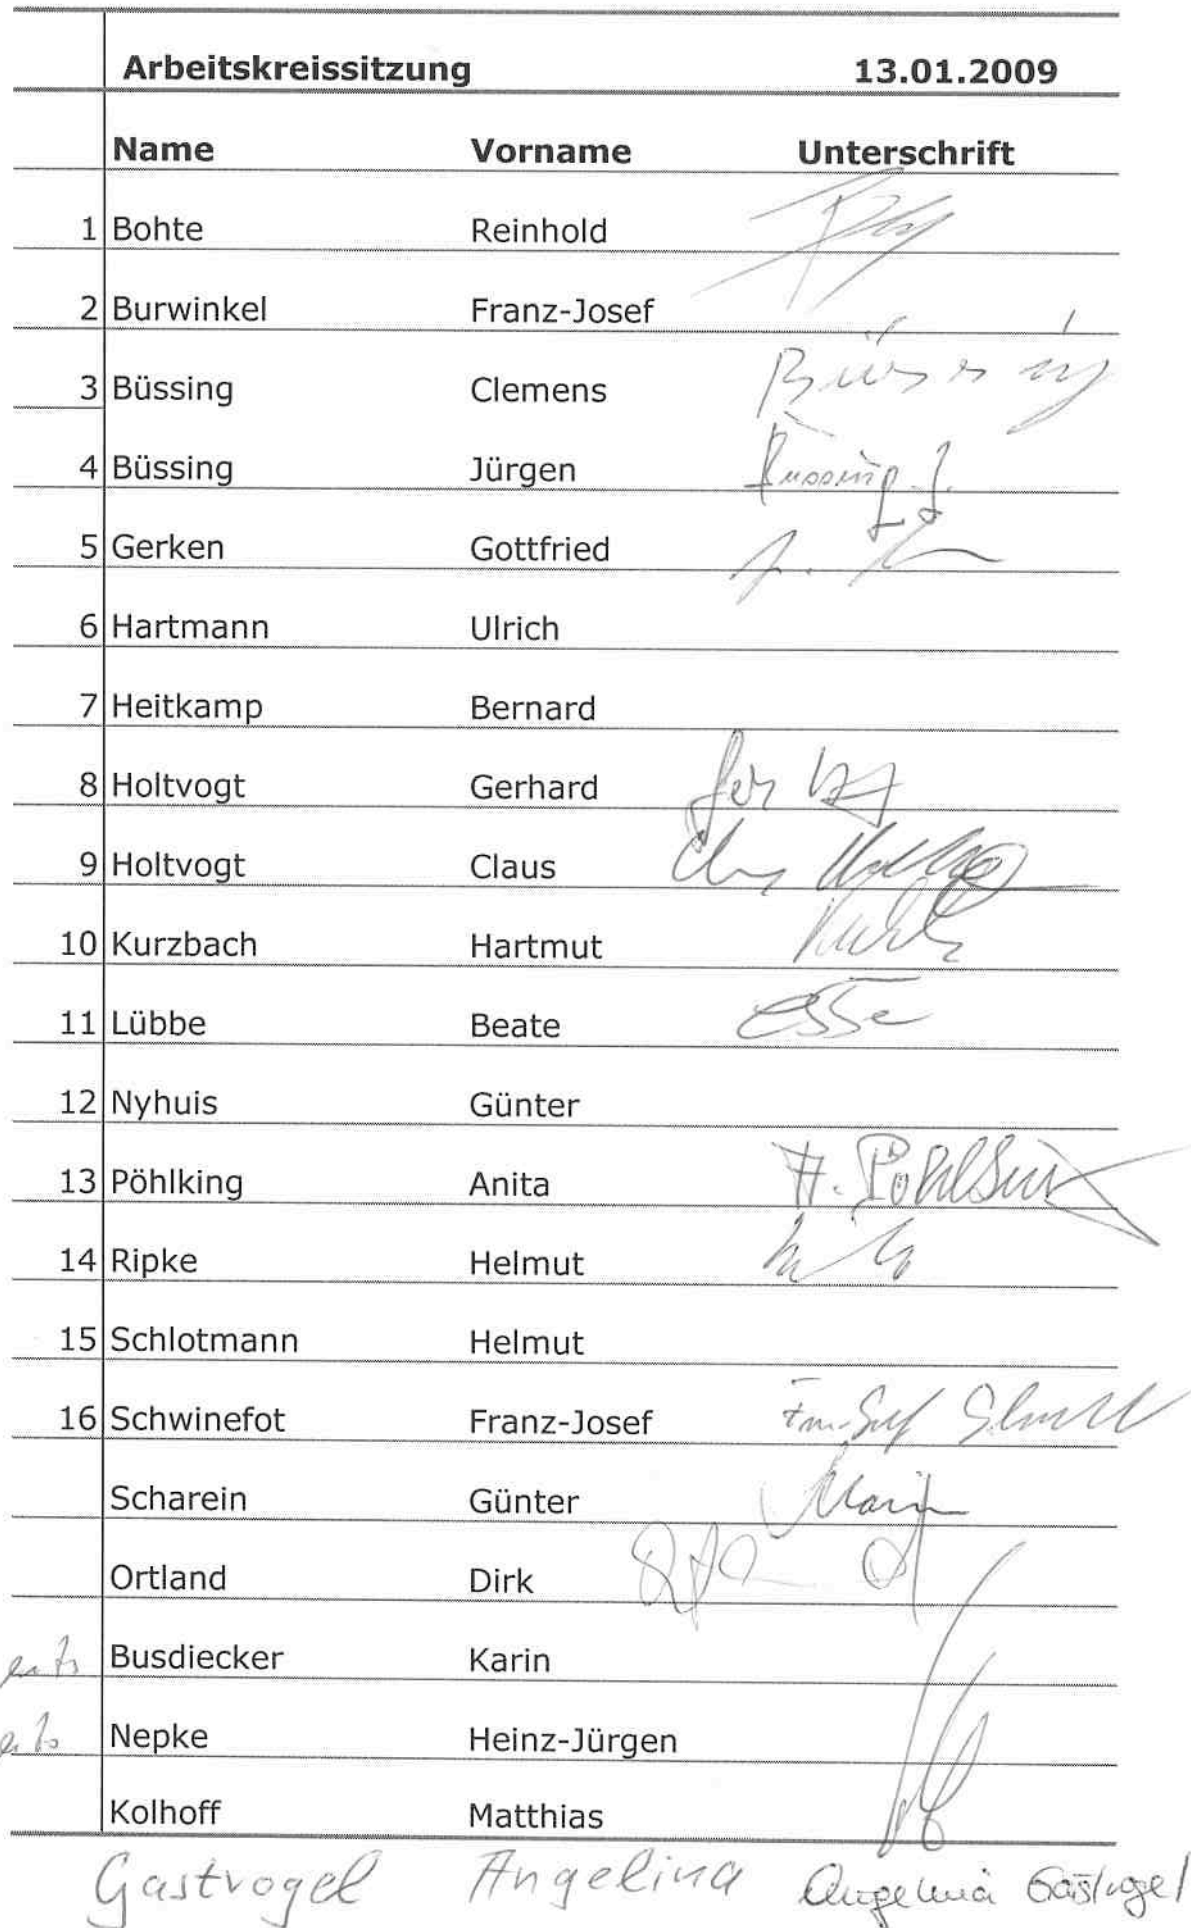 Arbeitskreissitzung 13.01.2009
Name Vorname Unterschrift
1 Bohte Reinhold
2 Burwinkel Franz-Josef
3 Büssing Clemens Büssing
4 Büssing Jürgen Büssing J.
5 Gerken Gottfried
6 Hartmann Ulrich
7 Heitkamp Bernard
8 Holtvogt Gerhard
9 Holtvogt Claus
10 Kurzbach Hartmut
11 Lübbe Beate
12 Nyhuis Günter
13 Pöhlking Anita A. Pöhlking
14 Ripke Helmut
15 Schlotmann Helmut
16 Schwinefot Franz-Josef
Scharein Günter
Ortland Dirk
Busdiecker Karin
Nepke Heinz-Jürgen
Kolhoff Matthias
Gastvogel Angelina Angelina Gastvogel